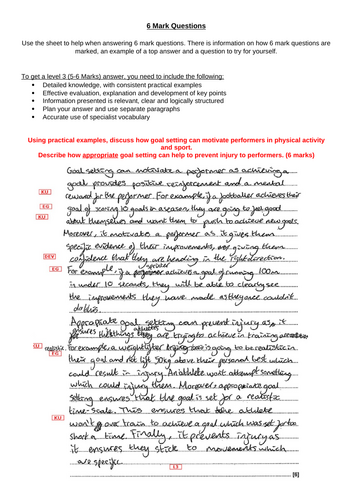 6 Mark Questions
Use the sheet to help when answering 6 mark questions. There is information on how 6 mark questions are
marked, an example of a top answer and a question to try for yourself.
To get a level 3 (5-6 Marks) answer, you need to include the following:
Detailed knowledge, with consistent practical examples
Effective evaluation, explanation and development of key points
Information presented is relevant, clear and logically structured
Plan your answer and use separate paragraphs
Accurate use of specialist vocabulary
Using practical examples, discuss how goal setting can motivate performers in physical activity
and sport.
Describe how appropriate goal setting can help to prevent injury to performers. (6 marks)
Goal setting can motivate a performer as achieving a
goal provides positive reinforcement and a mental
KU reward for the performer. For example, if a footballer achieves their
EG goal of scoring 10 goals a season, they are going to feel good
KU about themselves and want them to push to achieve new goals.
Moreover, it motivates a performer as it gives them
specific evidence of their improvements, giving them
DEV confidence that they are heading in the right direction.
EG For example, if a sprinter achieves a goal of running 100m
is under 10 seconds, they will be able to clearly see
the improvements they have made as they once couldn't
do this.
Appropriate goal setting can prevent injury as it
ensures the things athletes are trying to achieve in training are
KU realistic. For example, a weightlifter to be realistic in
EG their goal and not lift 50kg above their personal best which
could result in injury. An athlete won't attempt something
which could injury them. Moreover, appropriate goal
setting ensures that the goal is set for a realistic
time-scale. This ensures that the athlete
KU won't over train to achieve a goal which was set for too
short a time. Finally, it prevents injury as
it ensures they stick to movements which
are specific.
L3
[6]